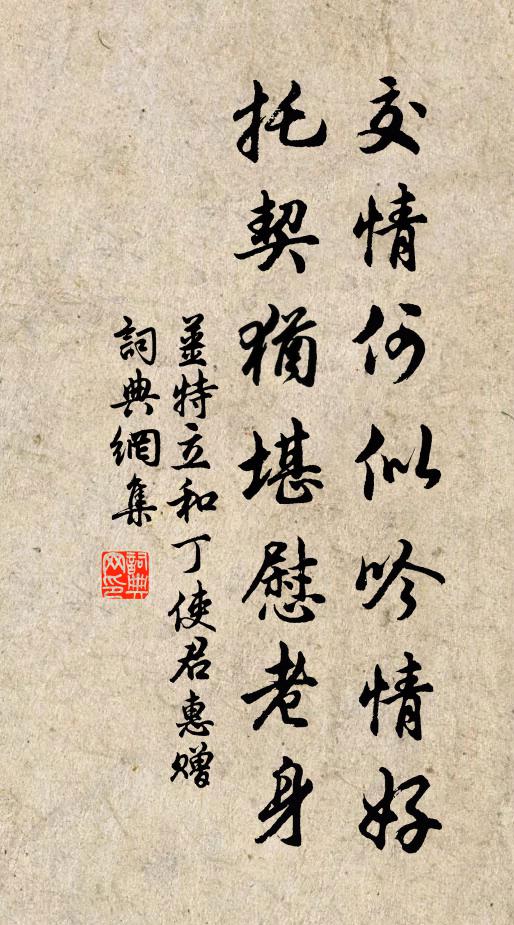 交情何似吟情好
托契猶堪慰老身
姜特立和丁使君惠贈
詞典網集
詞典
网印